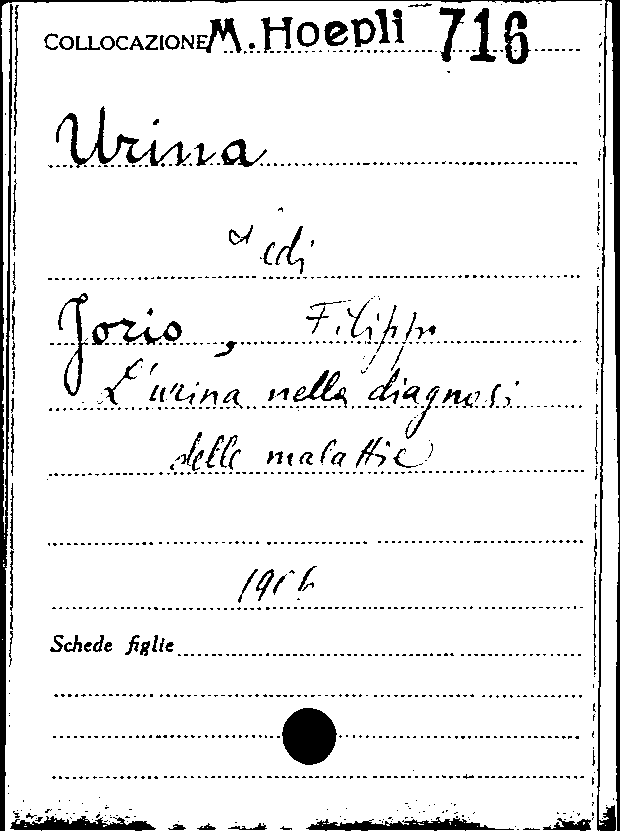 COLLOCAZIONE M. Hoepli 716
Urina
Vedi
Jorio, Filippo
L'urina nella diagnosi
delle malattie
Schede figlie